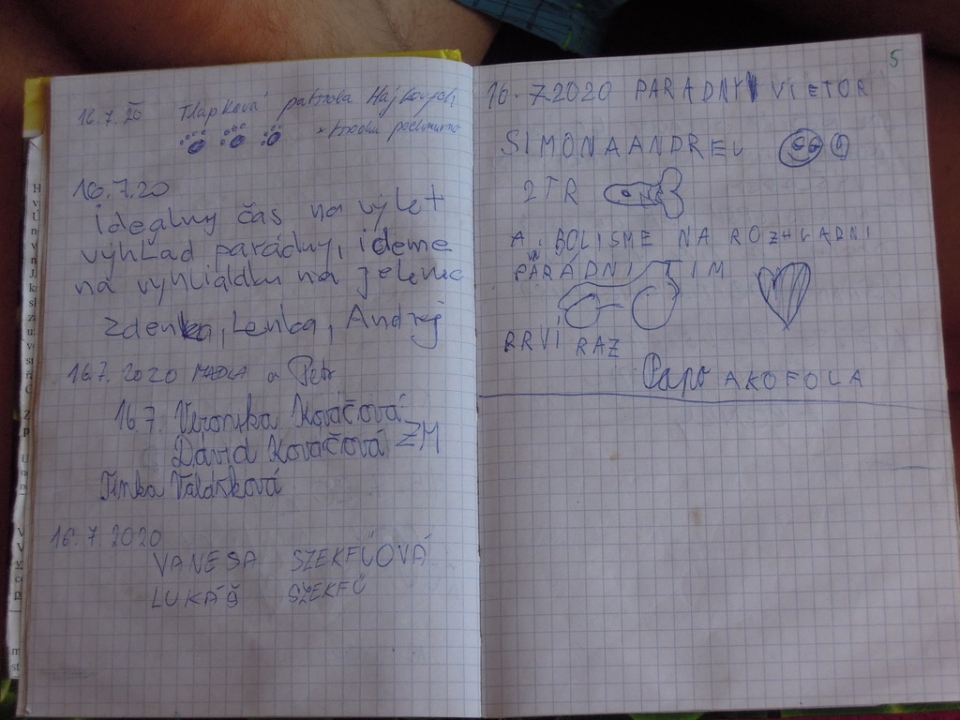 16.7.20 Tlapková patrola Hajkových,
trochu pochmúrno
16.7.20
Idealny čas na výlet
výhlad parádny, ideme
na vyhliadku na jelenec
Zdenka, Lenka, Andrej
16.7.2020 a Petr
16.7. Veronika Kováčová
David Kováčová ZM
Timka Valásková
16.7.2020
VANESA SZEKFÜOVÁ
LUKÁŠ SZEKFÜ
5
16.7.2020 PARADNY VIETOR
SIMONAANDREJ
2TR
A BOLISME NA ROZHLADNI
PARÁDNI TIM
PRVÍ RAZ
Papo AKOFOLA